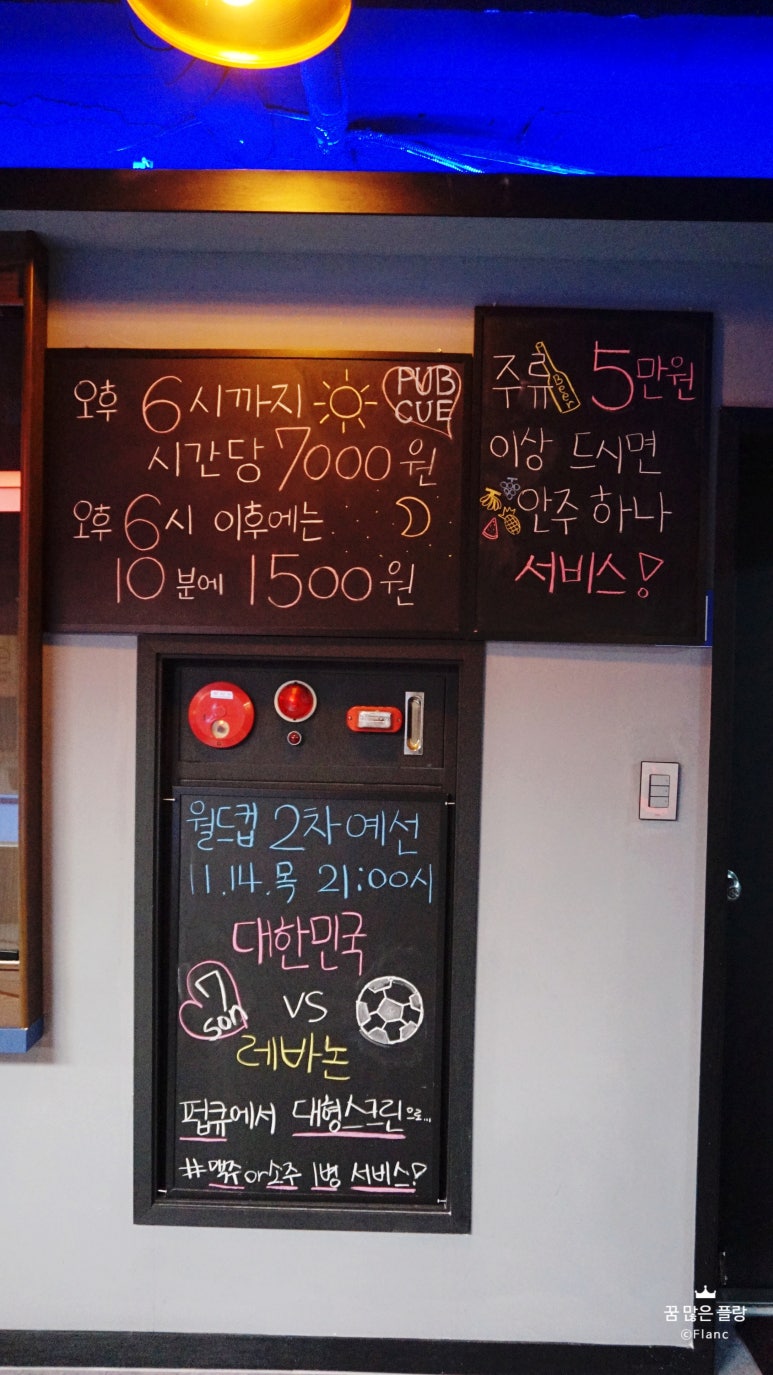 오후 6시까지
PUB
CUE
시간당 7000원
오후 6시 이후에는
10분에 1500원
주류 5만원
Beer
이상 드시면
안주 하나
서비스!
월드컵 2차예선
11.14.목 21:00시
대한민국
7
son
VS
레바논
펍큐에서 대형스크린으로...
#맥주or소주 1병 서비스!
꿈 많은 플랑
©Flanc